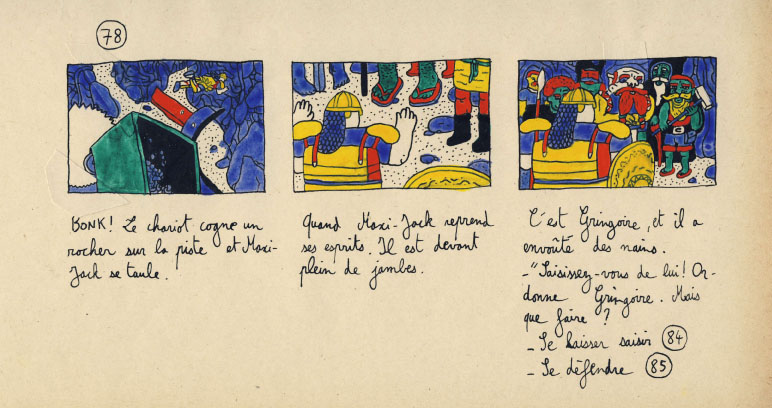 78
BONK! Le chariot cogne un
rocher sur la piste et Maxi-
Jack se taule.
Quand Maxi-Jack reprend
ses esprits. Il est devant
plein de jambes.
C'est Gringoire, et il a
envoûté des nains.
-"Saisissez-vous de lui! Or-
donne Gringoire. Mais
que faire ?
- Se laisser saisir 84
- Se défendre 85